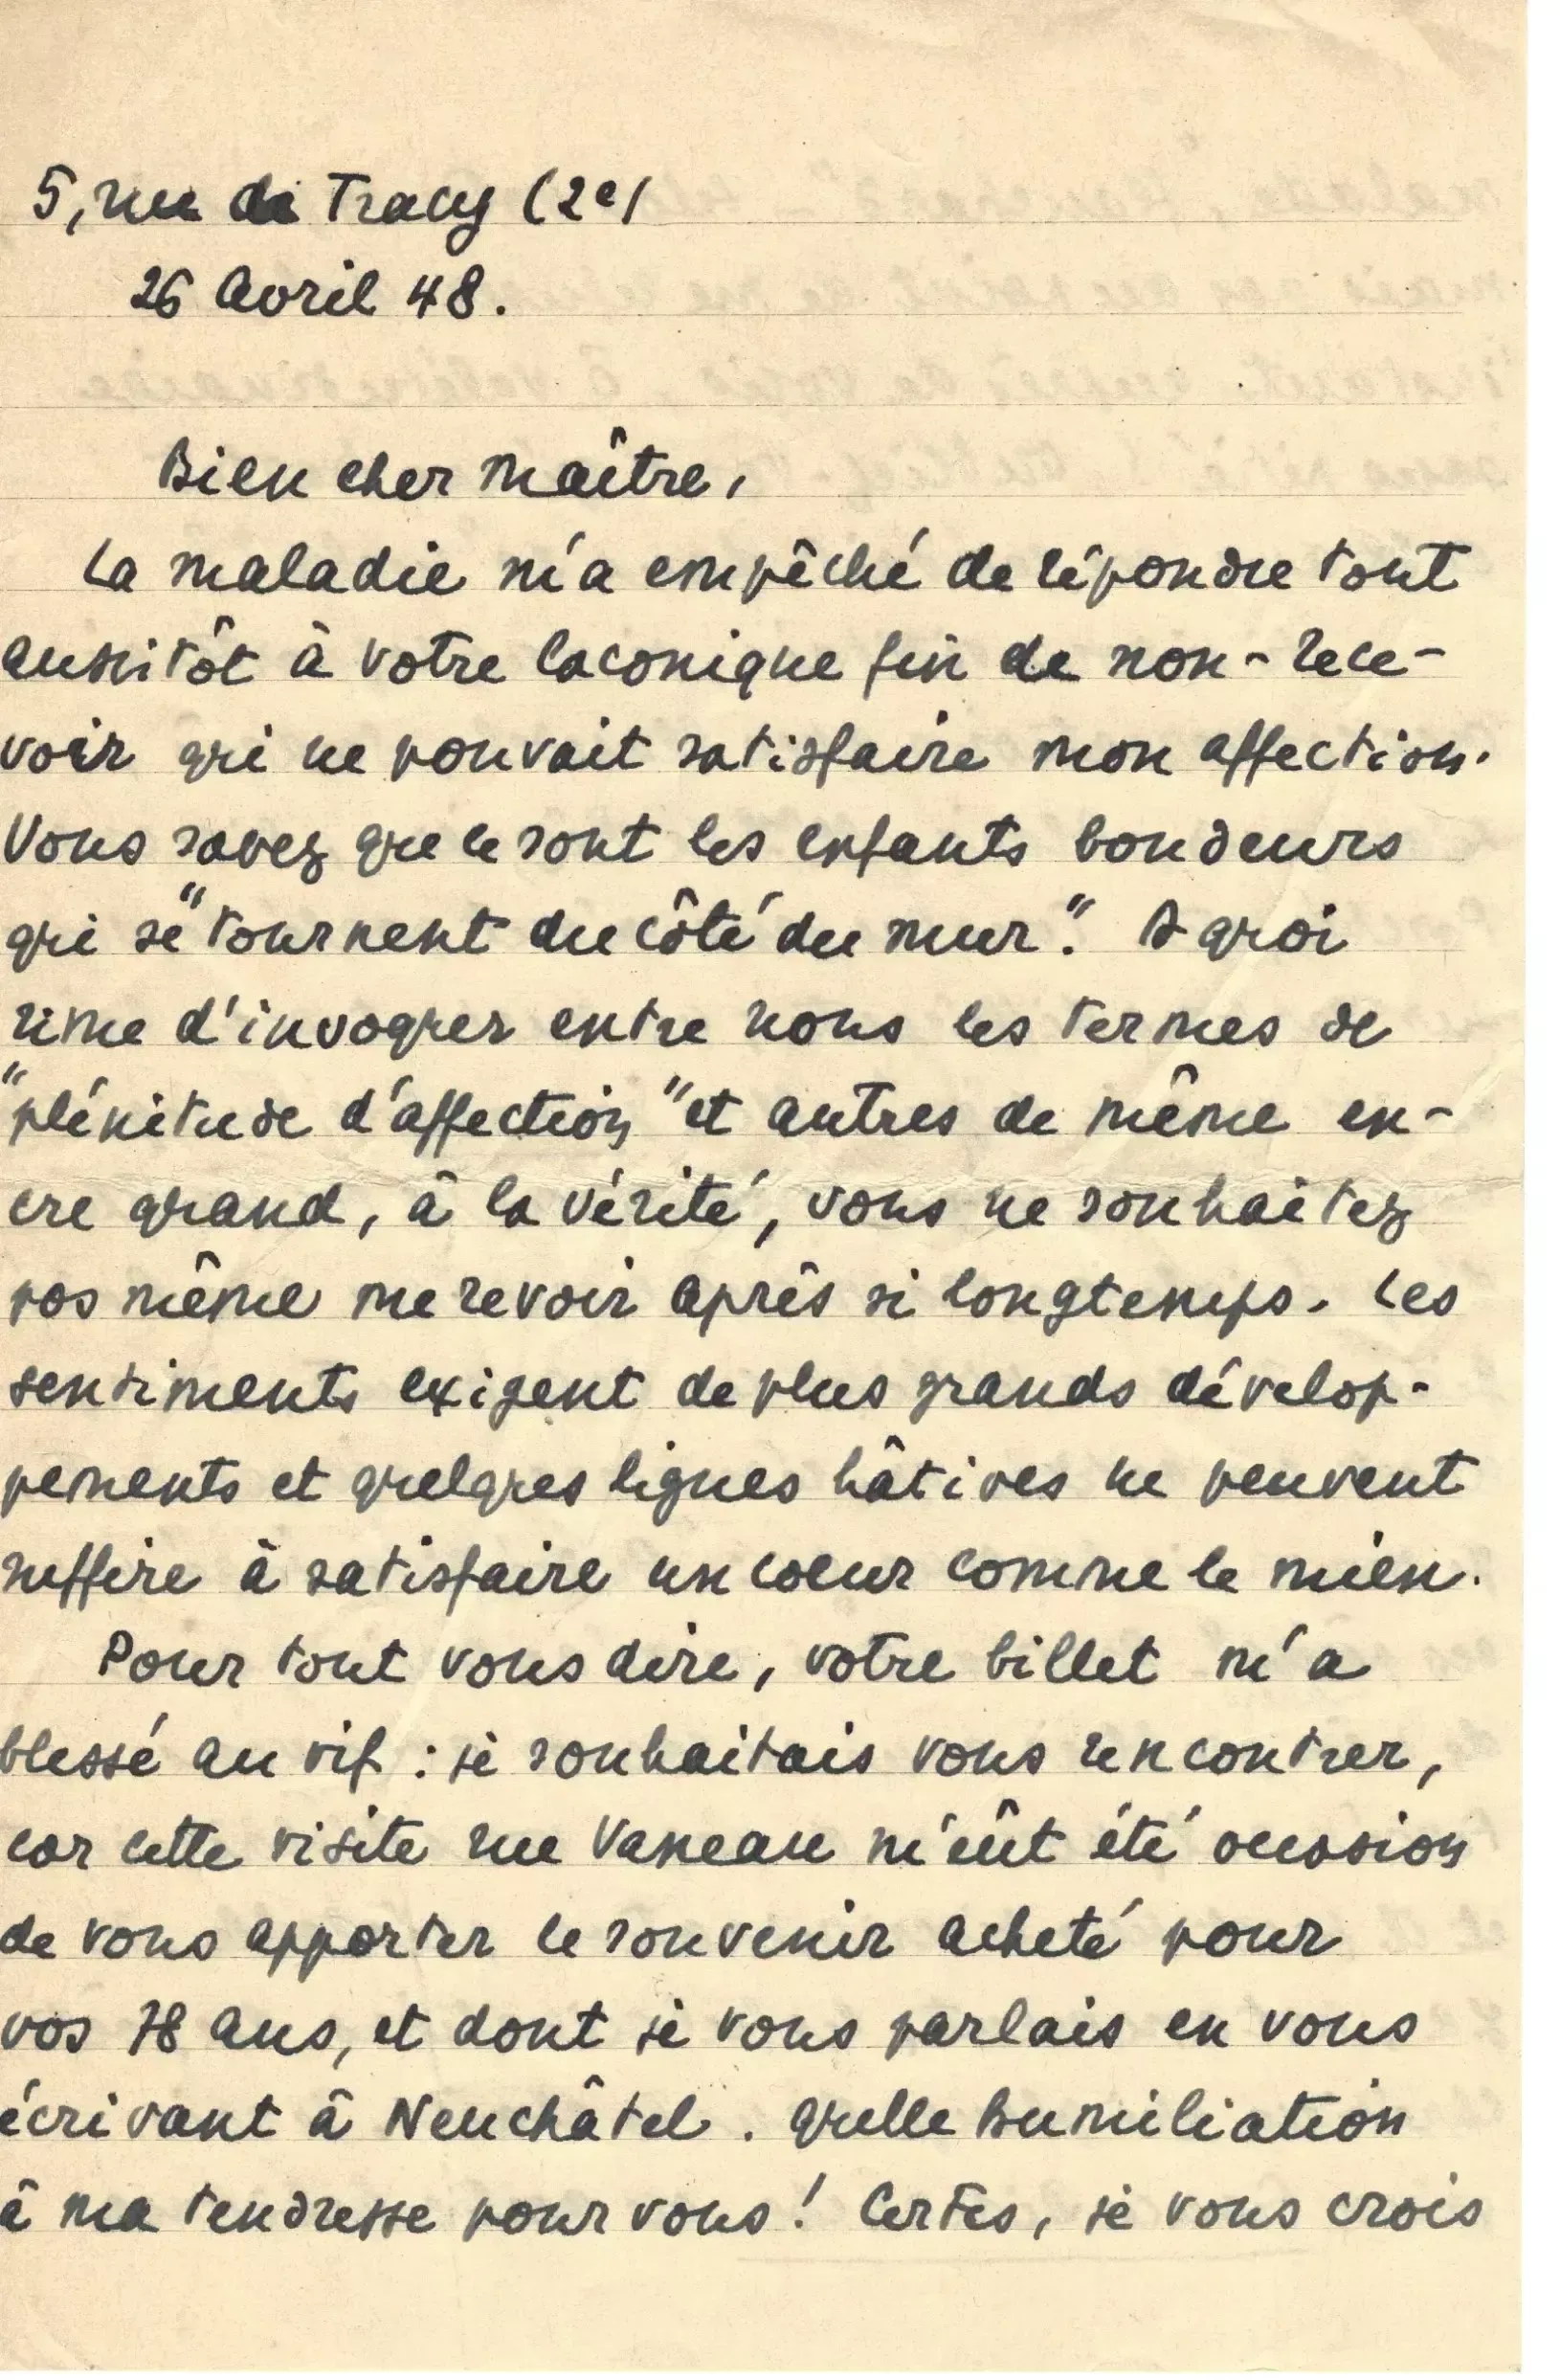 5, rue de Tracy (2e)
26 Avril 48.
Bien cher Maître,
La maladie m'a empêché de répondre tout
aussitôt à votre laconique fin de non-rece-
voir qui ne pouvait satisfaire mon affection.
Vous savez que ce sont les enfants boudeurs
qui se "tournent du côté du mur". A quoi
rime d'invoquer entre nous les termes de
"plénitude d'affection" et autres de même en-
cre quand, à la vérité, vous ne souhaitez
pas même me revoir après si longtemps. Les
sentiments exigent de plus grands dévelop-
pements et quelques lignes hâtives ne peuvent
suffire à satisfaire un coeur comme le mien.
Pour tout vous dire, votre billet m'a
blessé au vif : je souhaitais vous rencontrer,
car cette visite rue Vaneau m'eût été occasion
de vous apporter le souvenir acheté pour
vos 78 ans, et dont je vous parlais en vous
écrivant à Neuchâtel. Quelle humiliation
à ma tendresse pour vous ! Certes, je vous crois